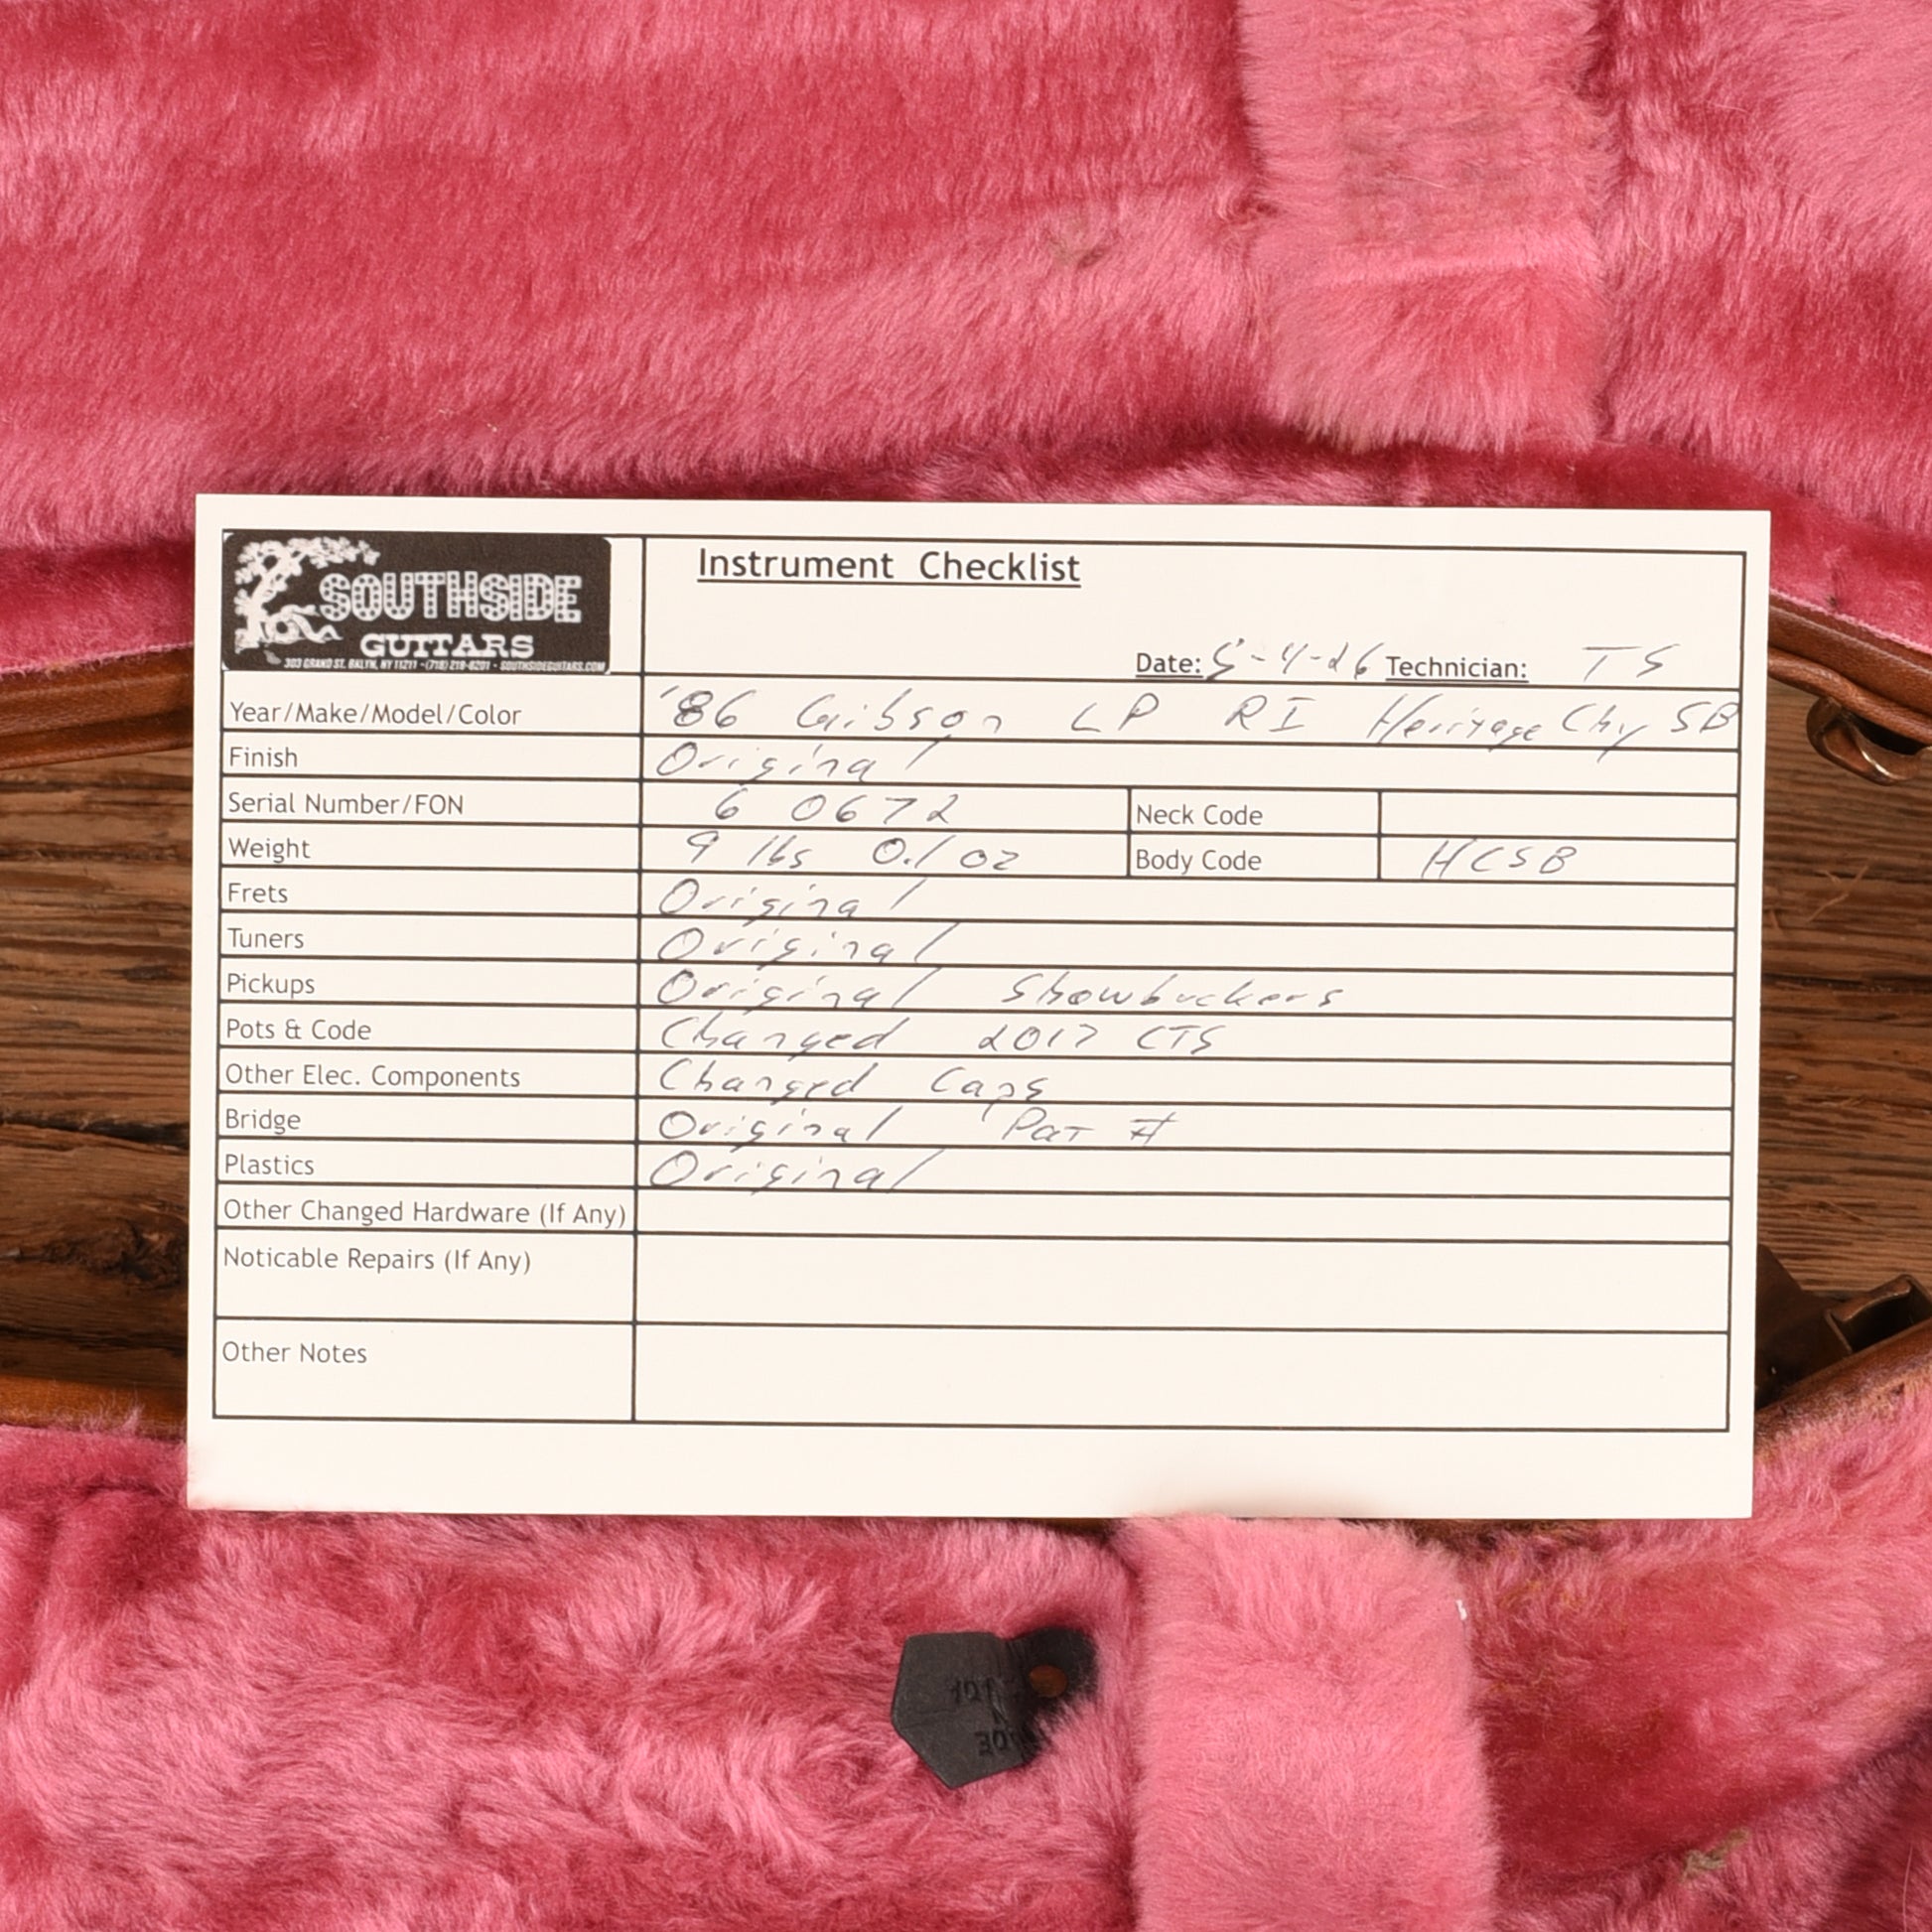 SOUTHSIDE
GUITARS
303 GRAND ST. BKLYN, NY 11211 - (718) 218-8201 - SOUTHSIDEGUITARS.COM
Instrument Checklist
Date: 5-4-26 Technician: TS
Year/Make/Model/Color '86 Gibson LP RI Heritage Chy SB
Finish Original
Serial Number/FON 6 0672 Neck Code
Weight 9 lbs 0.1 oz Body Code HCSB
Frets Original
Tuners Original
Pickups Original Showbuckers
Pots & Code Changed 2017 CTS
Other Elec. Components Changed Caps
Bridge Original Pat #
Plastics Original
Other Changed Hardware (If Any)
Noticable Repairs (If Any)
Other Notes